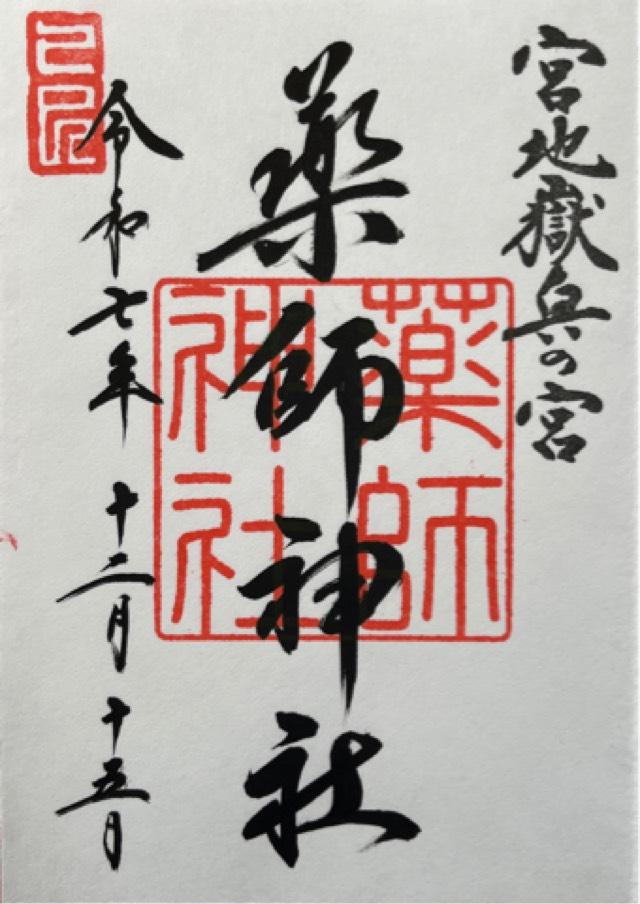 宮地嶽奥の宮
薬師神社
令和七年 十二月 十五日
己巳
薬師
神社